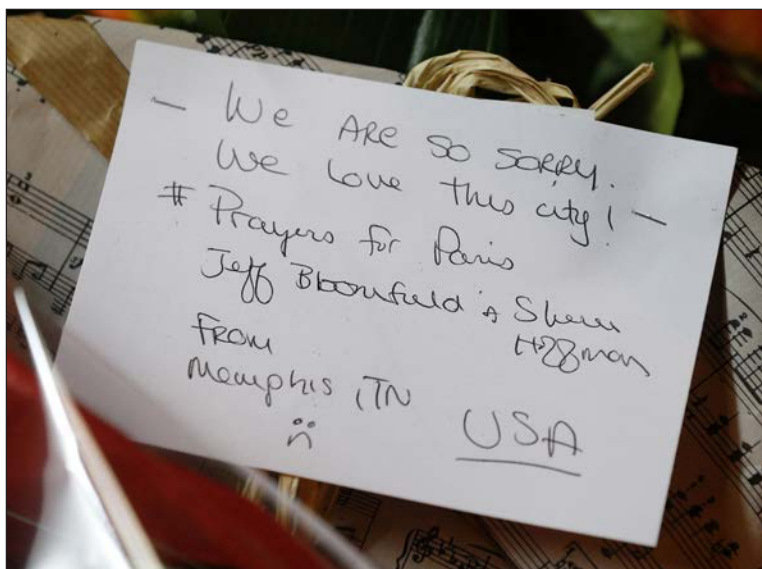 — We ARE SO SORRY.
We Love this city! —
# Prayers for Paris
Jeff Bloomfield &
Hoffman
From
Memphis, TN
USA